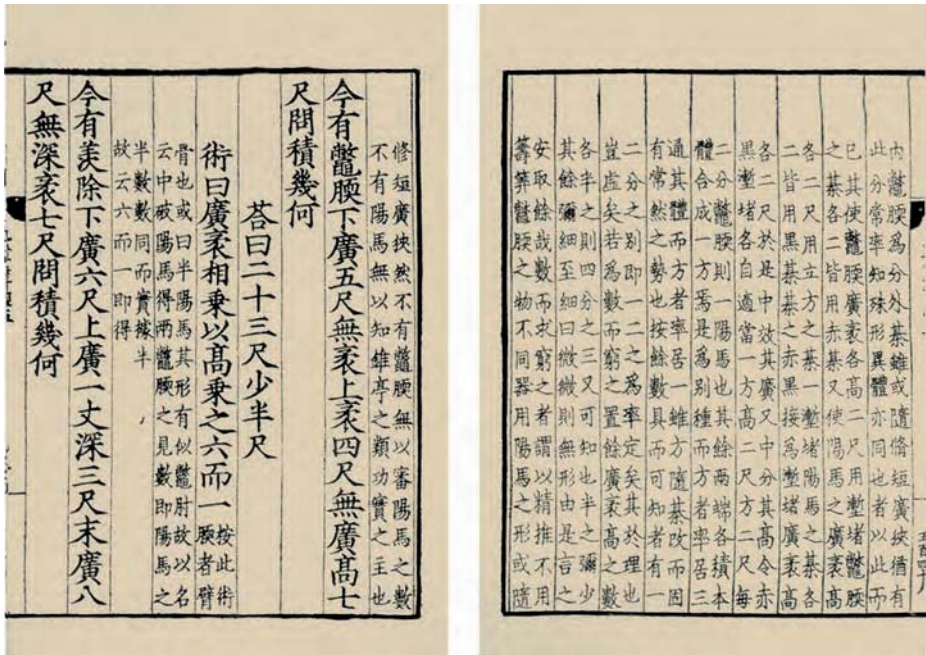 內鼈腰爲分外棊雖或隨脩短廣狹猶有
此分常率知殊形異體亦同也者以此而
已其使鼈腰廣袤各高二尺用塹堵鼈腰
之棊各二皆用赤棊又使陽馬之廣袤高
各二尺用立方之棊一塹堵陽馬之棊各
二皆用黑棊棊之赤黑接爲塹堵廣袤高
各二尺於是中效其廣又中分其高令赤
黑塹堵各自適當一方高二尺方二尺每
二分鼈腰則一陽馬也其餘兩端各積本
體合成一方焉是爲別種而方者率居三
通其體而方者率居一雖方隨棊改而固
有常然之勢也按餘數具而可知者有一
二分之別即一二之爲率定矣其於理也
豈虛矣若爲數而窮之置餘廣袤高之數
各半之則四分之三又可知也半之彌少
其餘彌細至細曰微微則無形由是言之
安取餘哉數而求窮之者謂以精推不用
籌筭鼈腰之物不同器用陽馬之形或隨
修短廣狹然不有鼈腰無以審陽馬之數
不有陽馬無以知錐亭之類功實之主也
今有鼈腰下廣五尺無袤上袤四尺無廣高七
尺問積幾何
荅曰二十三尺少半尺
術曰廣袤相乘以高乘之六而一
按此術
腰者臂
骨也或曰半陽馬其形有似鼈肘故以名
云中破陽馬得兩鼈腰之見數即陽馬之
半數數同而實據半
故云六而一即得
今有羨除下廣六尺上廣一丈深三尺末廣八
尺無深袤七尺問積幾何